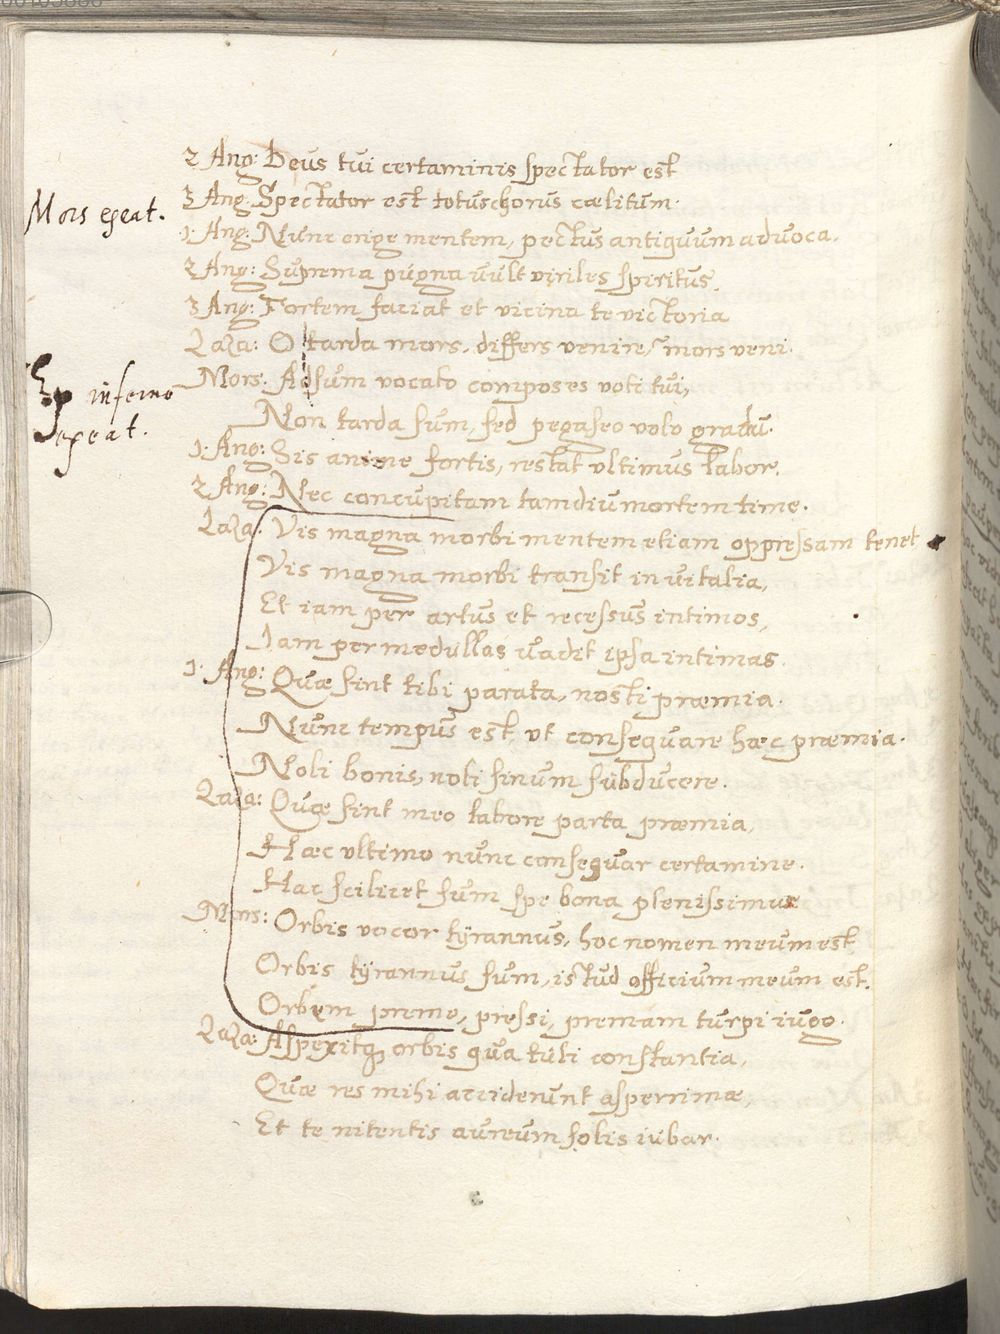 2 Ang: Deus tui certaminis spectator est
3 Ang: Spectator est totus chorus cælitum.
Mors exeat.
1. Ang: Nunc erige mentem, pectus antiquum advoca.
2 Ang: Suprema pugna vult viriles spiritus.
3 Ang: Fortem faciat et vicina te victoria
Laza: O tarda mors, differs venire, mors veni.
Ex inferno
exeat.
Mors: Adsum vocato compos es voti tui,
Non tarda sum, sed pegaseo volo gradu.
1. Ang: Sis anime fortis, restat ultimus labor.
2 Ang: Nec concupitam tamdiu mortem time.
Laza: Vis magna morbi mentem etiam oppressam tenet
Vis magna morbi transit in vitalia,
Et iam per artus et recessus intimos,
Iam per medullas vadit ipsa intimas.
1. Ang: Quæ sint tibi parata, nosti præmia.
Nunc tempus est ut consequare hæc præmia.
Noli bonis, noli sinum subducere.
Laza: Quæ sint meo labore parta præmia,
Hæc ultimo nunc consequar certamine.
Hac scilicet sum spe bona plenissimus
Mors: Orbis vocor tÿrannus, hoc nomen meum est
Orbis tÿrannus sum, istud officium meum est.
Orbem premo, pressi, premam turpi iugo.
Laza: Aspexitq orbis qua tuli constantia,
Quæ res mihi acciderunt asperrimæ,
Et te nitentis aureum solis iubar.